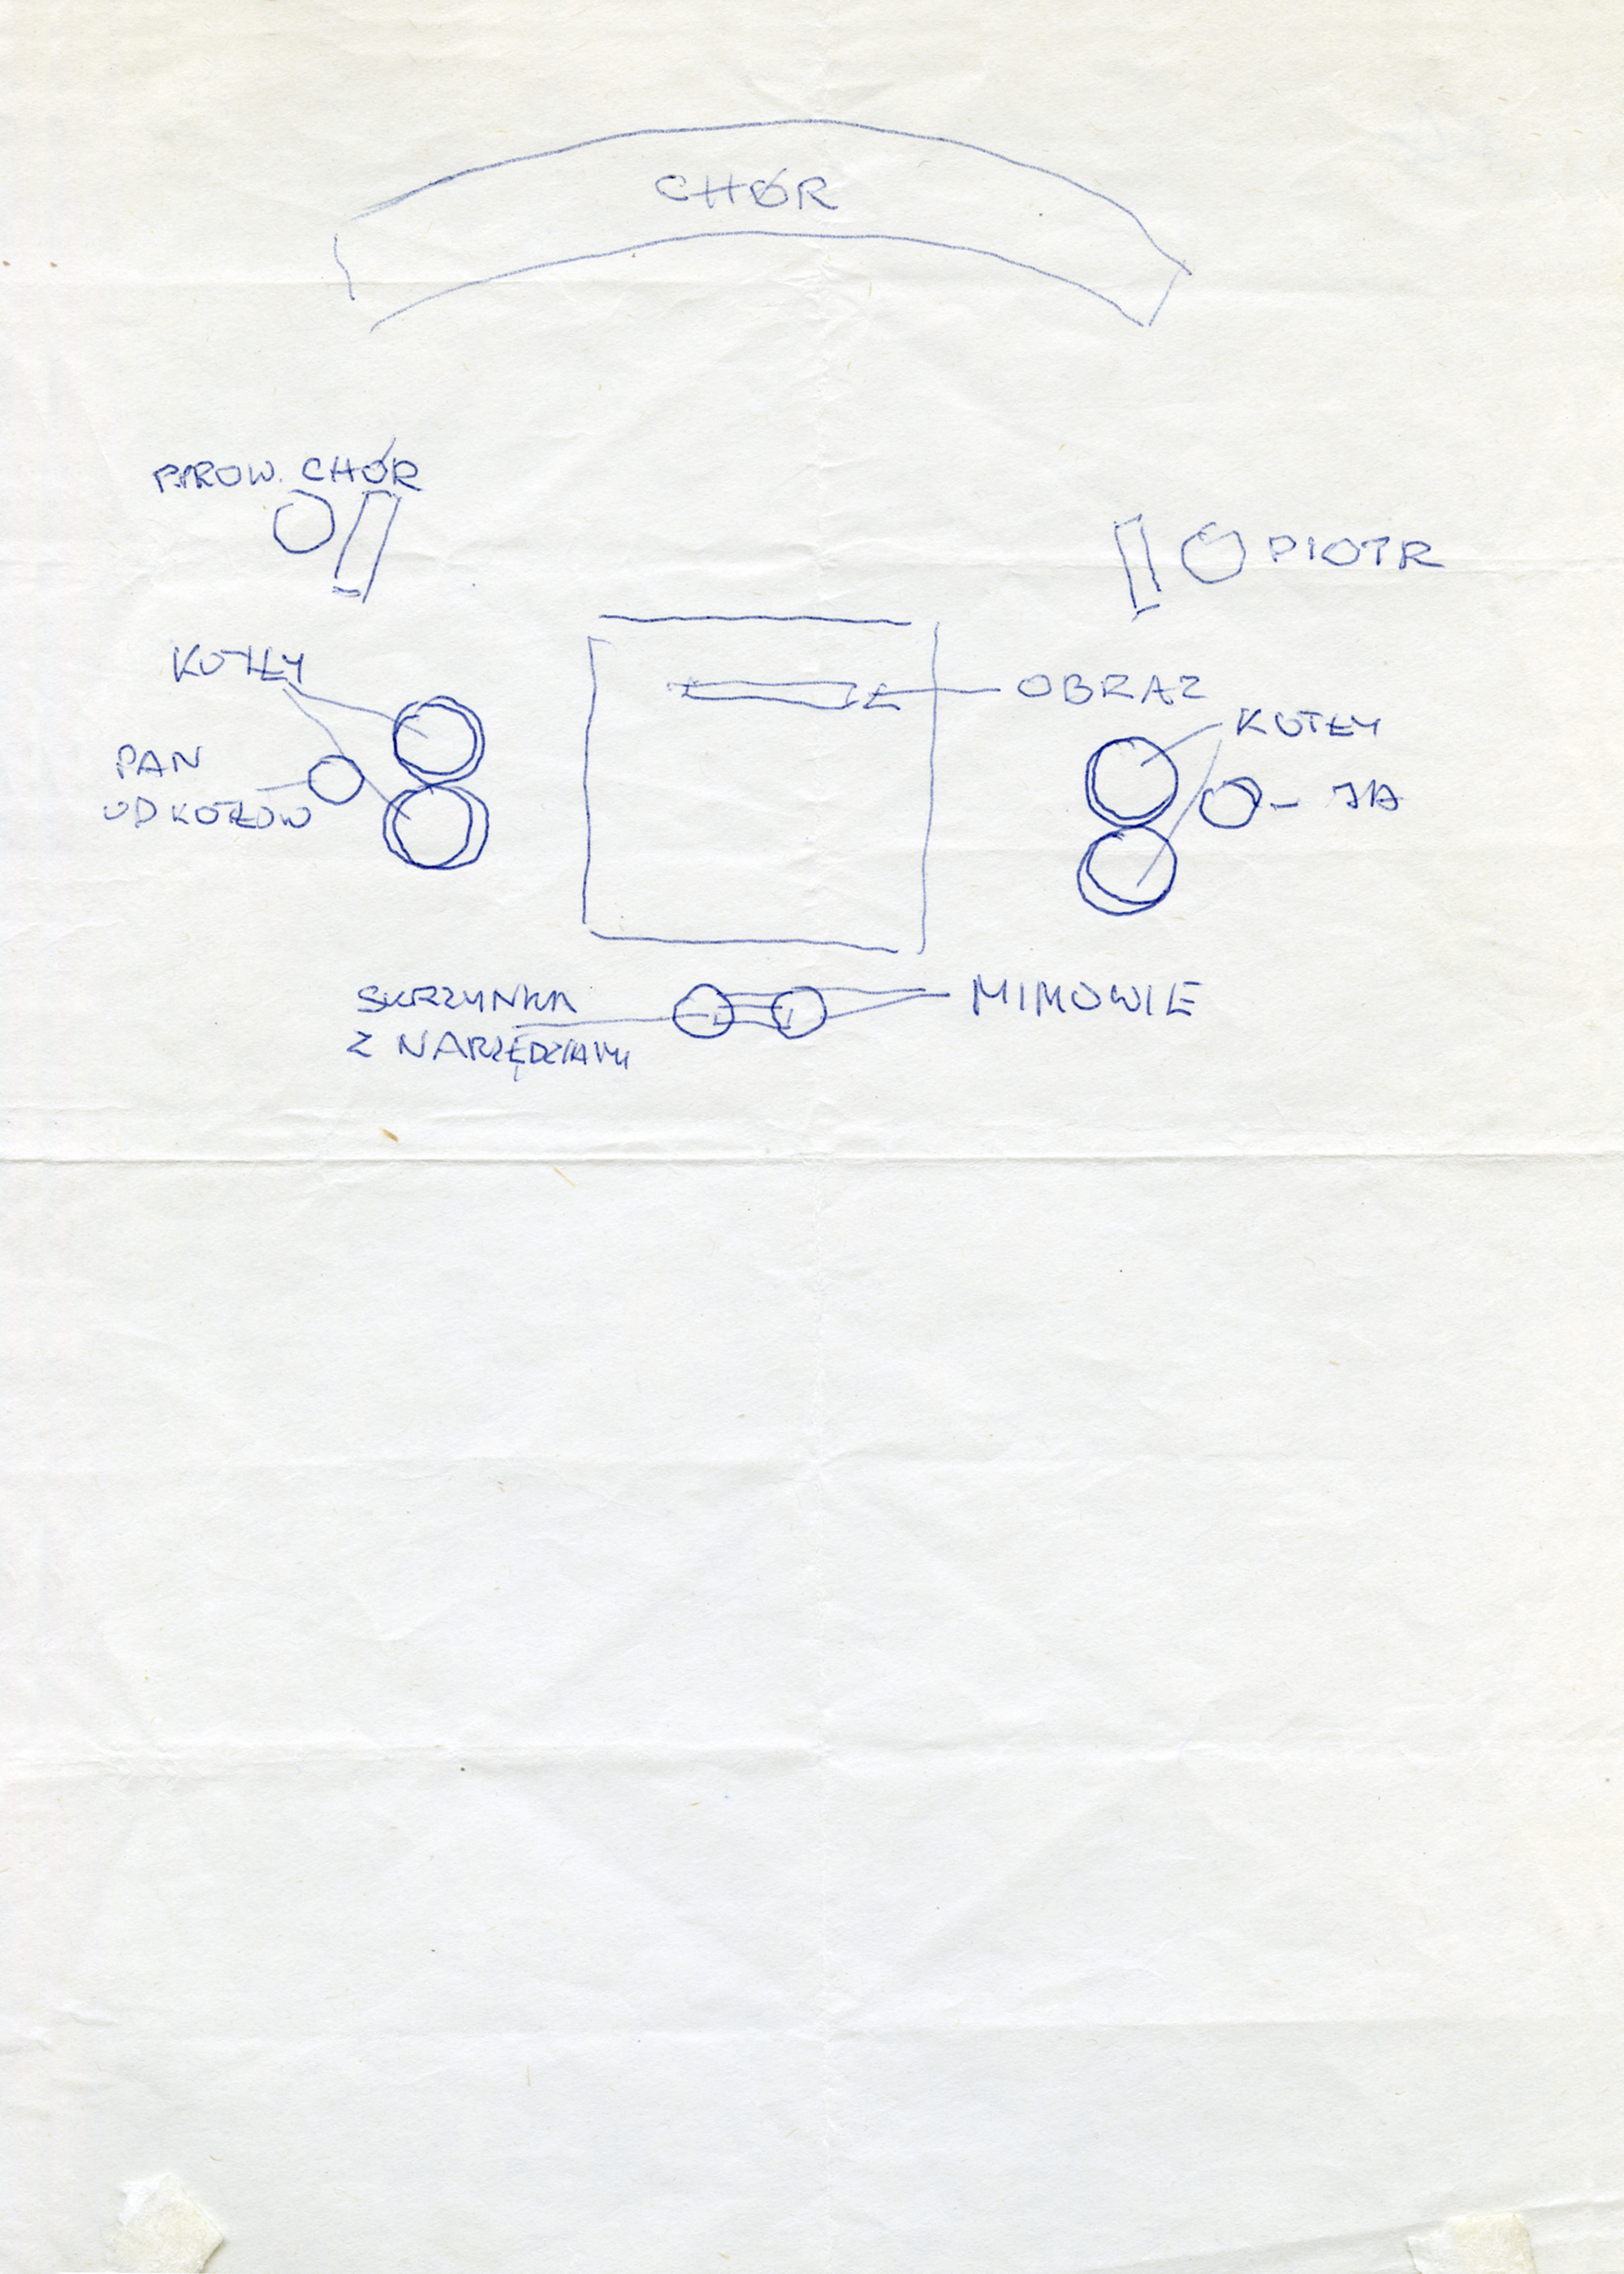 CHÓR
P.PROW. CHÓR
PIOTR
KOTŁY
OBRAZ
KOTŁY
PAN
OD KOTŁÓW
JA
SKRZYNKA
Z NARZĘDZIAMI
MIMOWIE